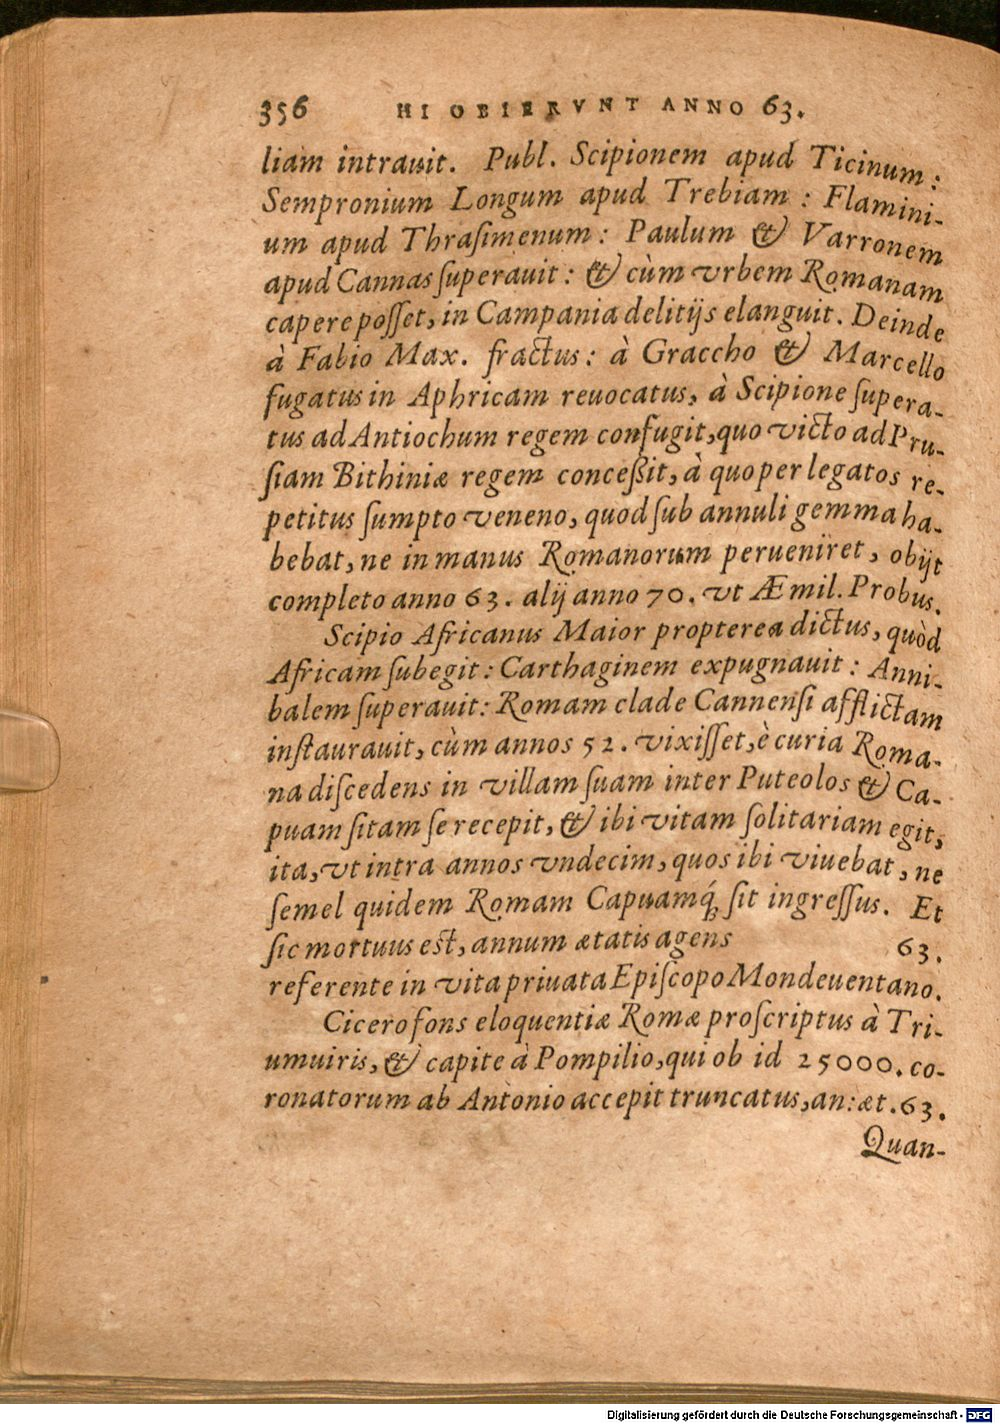 356 HI OBIERVNT ANNO 63.
liam intrauit. Publ. Scipionem apud Ticinum:
Sempronium Longum apud Trebiam : Flamini-
um apud Thraſimenum: Paulum & Varronem
apud Cannas ſuperauit: & cùm vrbem Romanam
capere poſſet, in Campania delitijs elanguit. Deinde
à Fabio Max. fractus: à Graccho & Marcello
fugatus in Aphricam reuocatus, à Scipione ſupera-
tus ad Antiochum regem confugit, quo victo ad Pru-
ſiam Bithiniæ regem conceßit, à quo per legatos re-
petitus ſumpto veneno, quod ſub annuli gemma ha-
bebat, ne in manus Romanorum perueniret, obijt
completo anno 63. alij anno 70. vt Æmil. Probus.
Scipio Africanus Maior propterea dictus, quòd
Africam ſubegit: Carthaginem expugnauit: Anni-
balem ſuperauit: Romam clade Cannenſi afflictam
inſtaurauit, cùm annos 52. vixiſſet, è curia Roma-
na diſcedens in villam ſuam inter Puteolos & Ca-
puam ſitam ſe recepit, & ibi vitam ſolitariam egit,
ita, vt intra annos vndecim, quos ibi viuebat, ne
ſemel quidem Romam Capuamq́; ſit ingreſſus. Et
ſic mortuus eſt, annum ætatis agens 63.
referente in vita priuata Epiſcopo Mondeuentano.
Cicero fons eloquentiæ Romæ proſcriptus à Tri-
umuiris, & capite à Pompilio, qui ob id 25000. co-
ronatorum ab Antonio accepit truncatus, an: æt. 63.
Quan-
Digitalisierung gefördert durch die Deutsche Forschungsgemeinschaft - DFG